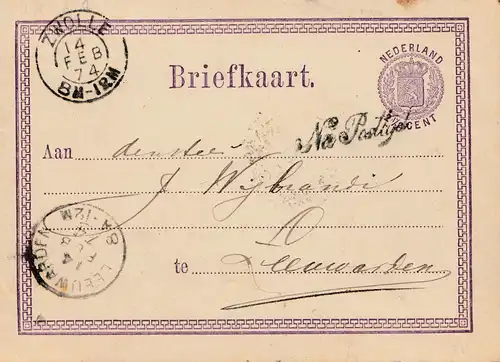 ZWOLLE
14
FEB
74
8M-12M
NEDERLAND
CENT
Briefkaart.
Na Posttijd
Aan den Heer
J Wijbrandi
te Leeuwarden
LEEUWARDEN
8M-12M